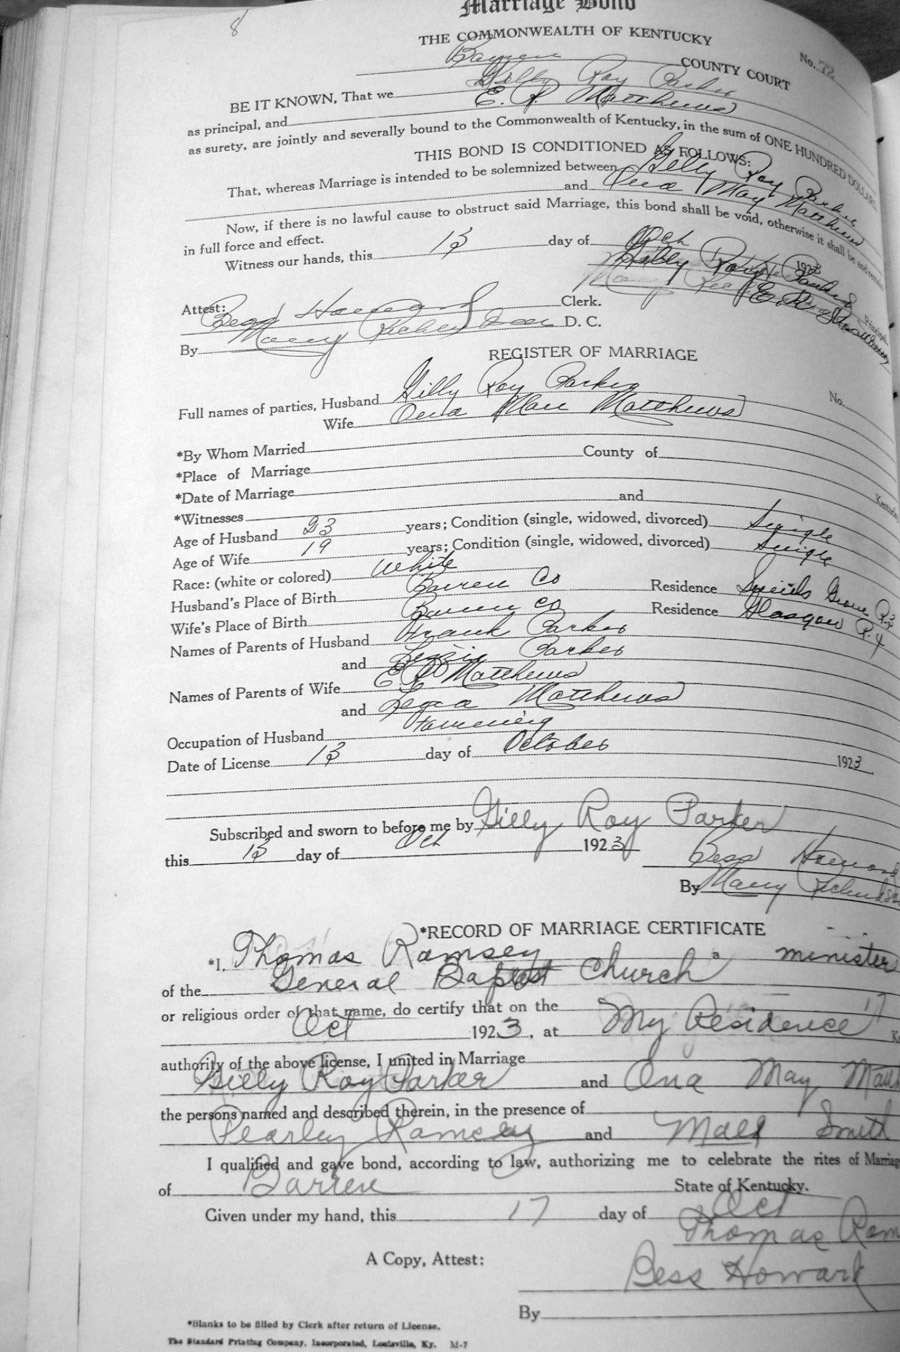 8
Marriage Bond
THE COMMONWEALTH OF KENTUCKY
No. 72
Barren COUNTY COURT
BE IT KNOWN, That we Gilly Roy Parker
as principal, and E. P. Matthews
as surety, are jointly and severally bound to the Commonwealth of Kentucky, in the sum of ONE HUNDRED DOLLARS
THIS BOND IS CONDITIONED AS FOLLOWS:
That, whereas Marriage is intended to be solemnized between Gilly Roy Parker
and Ona May Matthews
Now, if there is no lawful cause to obstruct said Marriage, this bond shall be void, otherwise it shall be and remain
in full force and effect.
Witness our hands, this 13 day of Oct 1923
Gilly Roy Parker
Attest: Bess Howard Clerk.
By D. C.
REGISTER OF MARRIAGE
No.
Full names of parties, Husband Gilly Roy Parker
Wife Ona Mae Matthews
*By Whom Married
*Place of Marriage County of Kentucky
*Date of Marriage
*Witnesses and
Age of Husband 23 years; Condition (single, widowed, divorced) Single
Age of Wife 19 years; Condition (single, widowed, divorced) Single
Race: (white or colored) White
Husband's Place of Birth Barren Co Residence Smiths Grove R.3
Wife's Place of Birth Barren Co Residence Glasgow R.4
Names of Parents of Husband Frank Parker
and Lizzie Parker
Names of Parents of Wife E P Matthews
and Matthews
Occupation of Husband Farming
Date of License 13 day of October 1923
Subscribed and sworn to before me by Gilly Roy Parker
this 13 day of Oct 1923 Bess Howard
By Mary
*RECORD OF MARRIAGE CERTIFICATE
*I, Thomas Ramsey a minister
of the General Baptist Church
or religious order of that name, do certify that on the 17
Oct 1923, at My Residence
authority of the above license, I united in Marriage
Gilly Roy Parker and Ona May
the persons named and described therein, in the presence of
Pearley Ramsey and Smith
I qualified and gave bond, according to law, authorizing me to celebrate the rites of Marriage
of Barren State of Kentucky.
Given under my hand, this 17 day of Oct
Thomas Ram
A Copy, Attest: Bess Howard
By
*Blanks to be filled by Clerk after return of License.
The Standard Printing Company, Incorporated, Louisville, Ky. M-7